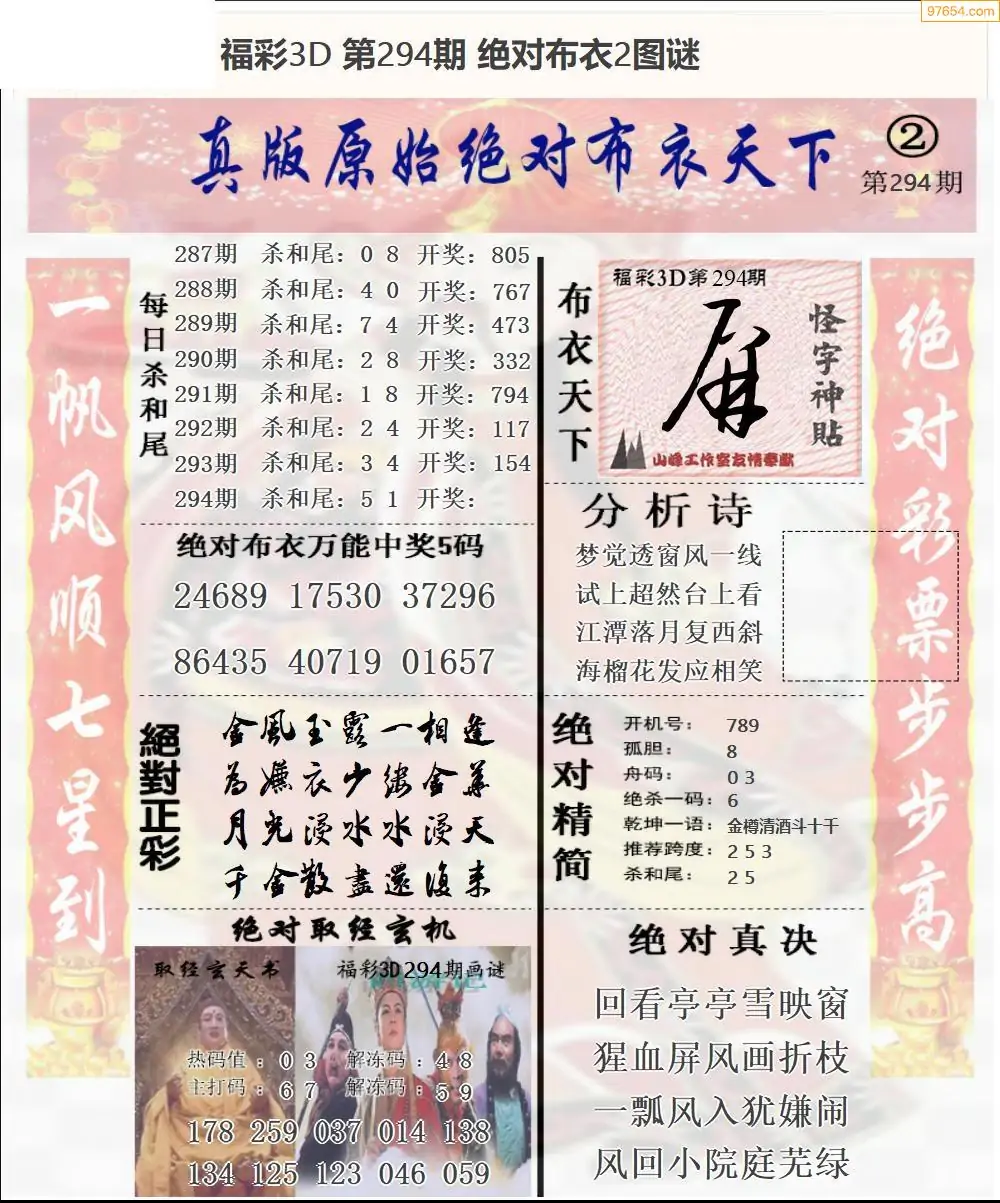 97654.com
福彩3D 第294期 绝对布衣2图谜
真版原始绝对布衣天下
②
第294期
一帆风顺七星到
每日杀和尾
287期 杀和尾：0 8 开奖：805
288期 杀和尾：4 0 开奖：767
289期 杀和尾：7 4 开奖：473
290期 杀和尾：2 8 开奖：332
291期 杀和尾：1 8 开奖：794
292期 杀和尾：2 4 开奖：117
293期 杀和尾：3 4 开奖：154
294期 杀和尾：5 1 开奖：
绝对布衣万能中奖5码
24689 17530 37296
86435 40719 01657
絕對正彩
金風玉露一相逢
為嫌衣少縷金華
月光浸水水浸天
千金散盡還復来
绝对取经玄机
取经玄天书
福彩3D294期画谜
热码值：0 3 解冻码：4 8
主打码：6 7 解冻码：5 9
178 259 037 014 138
134 125 123 046 059
布衣天下
福彩3D第294期
怪字神貼
山峰工作室友情奉献
分析诗
梦觉透窗风一线
试上超然台上看
江潭落月复西斜
海榴花发应相笑
绝对精简
开机号： 789
孤胆： 8
舟码： 0 3
绝杀一码：6
乾坤一语：金樽清酒斗十千
推荐跨度：2 5 3
杀和尾： 2 5
绝对真决
回看亭亭雪映窗
猩血屏风画折枝
一瓢风入犹嫌闹
风回小院庭芜绿
绝对彩票步步高